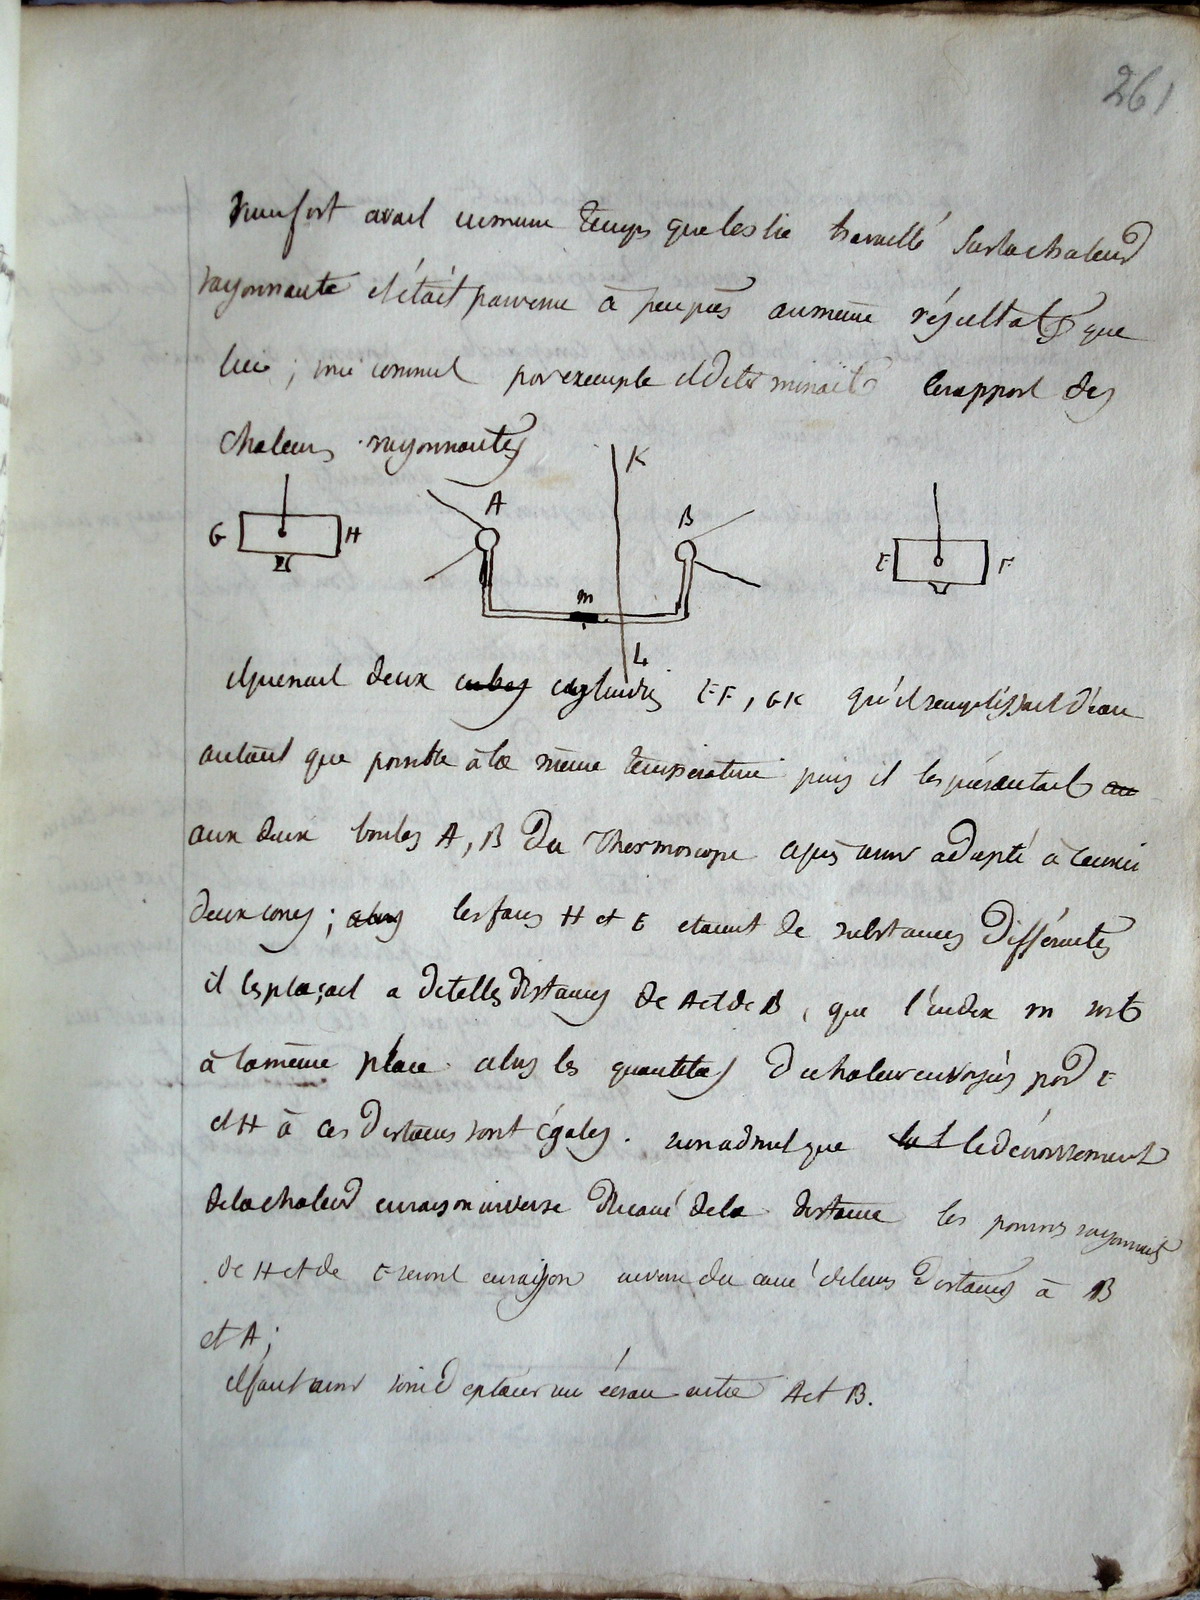 261
Rumfort avait en même temps que leslie travaillé sur la chaleur
rayonnante et était parvenu à peu près au même résultats que
lui ; voici comment par exemple il determinait le rapport des
chaleurs rayonnantes
K
A
B
G H
E F
m
L
il prenait deux cubes cylindres EF, GK qu'il remplissait d'eau
autant que possible à la même température puis il les présentait au
aux deux boules A, B du Thermoscope après avoir adapté à
deux cones ; alors les faces H et E étaient de substances différentes
il les plaçait a de telles distances de A et de B, que l'index m soit
à la même place. alors les quantités de chaleur envoyées par E
et H à ces distances sont égales. si on admet que la l le décroissement
de la chaleur en raison inverse du carré de la distance les pouvoirs rayonnants
de H et de E seront en raison inverse du carré de leurs distances à B
et A ;
il faut avoir soin de placer un écran entre A et B.